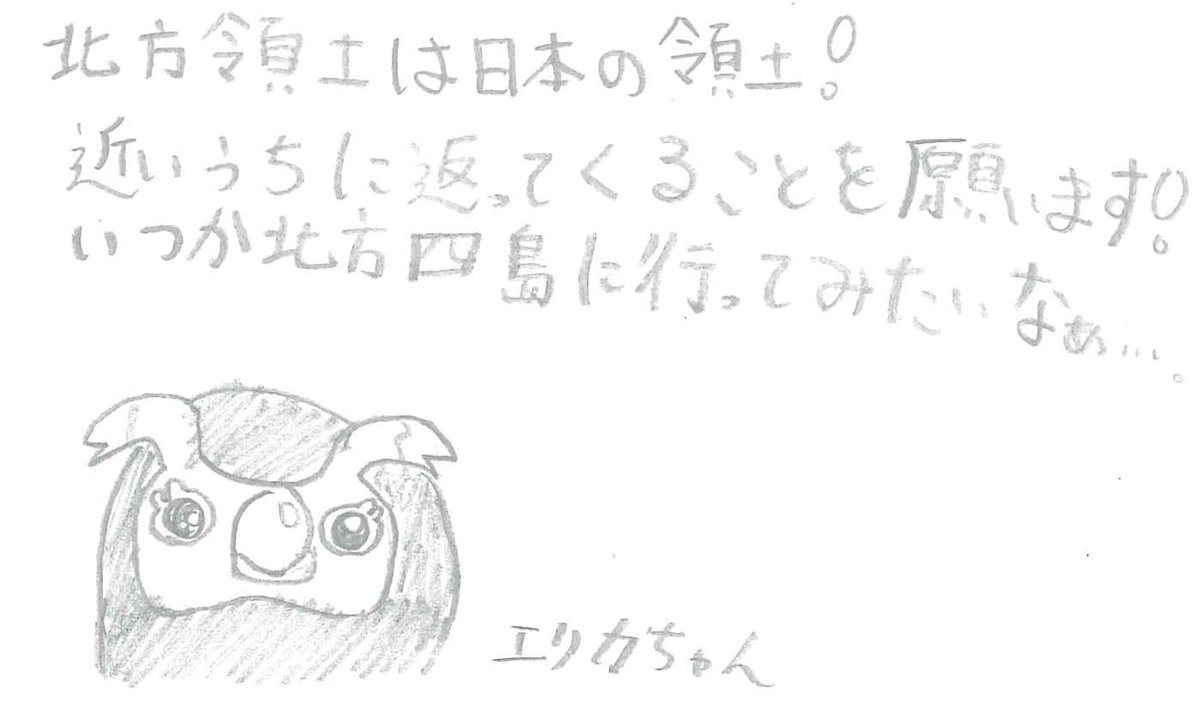 北方領土は日本の領土!
近いうちに返ってくることを願います!
いつか北方四島に行ってみたいなぁ…。
エリカちゃん